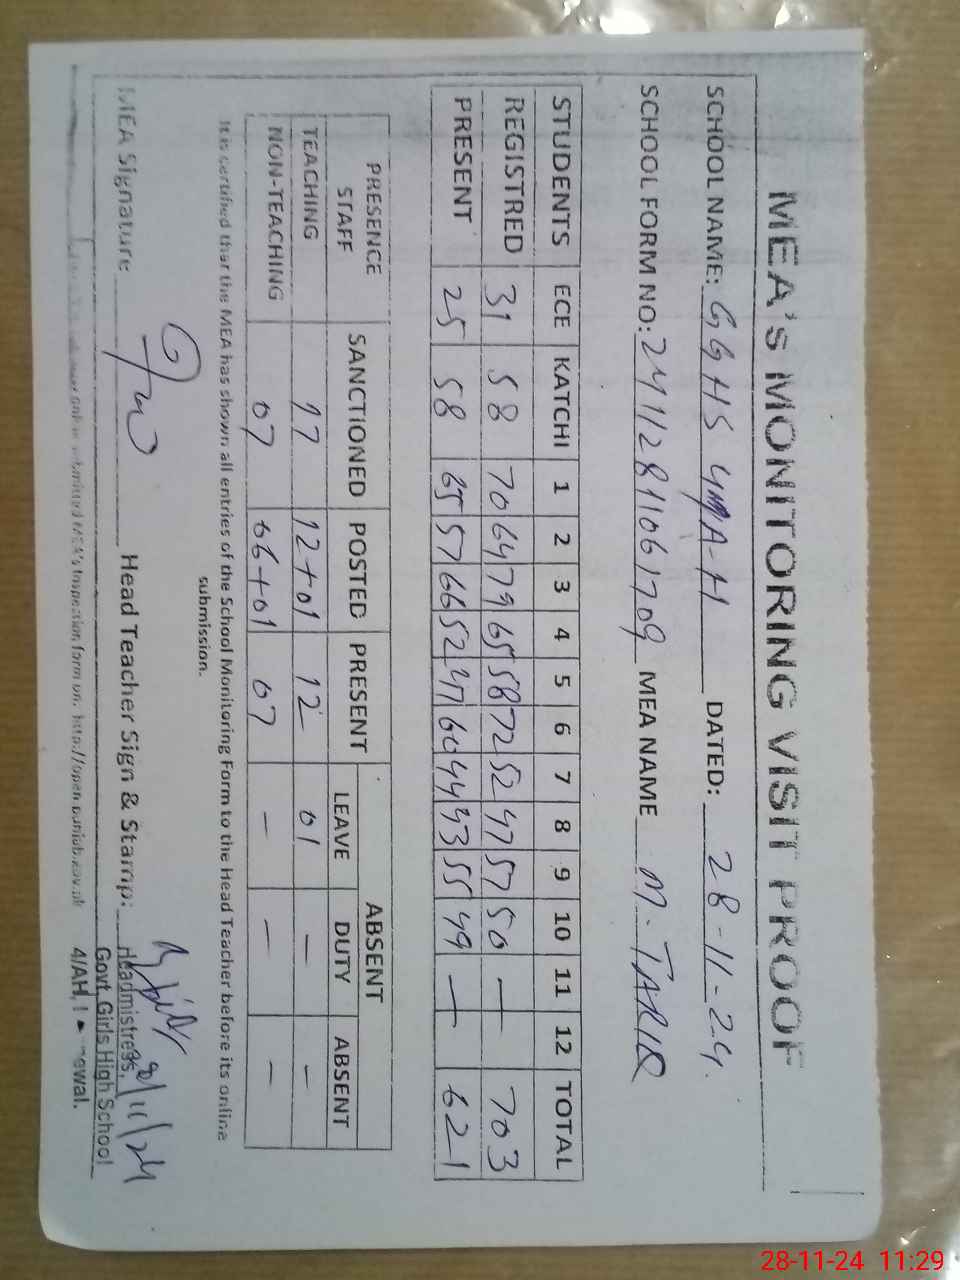 MEA's MONITORING VISIT PROOF
SCHOOL NAME: GGHS 4/A-H DATED: 28-11-24.
SCHOOL FORM NO: MEA NAME M. TARIQ
STUDENTS ECE KATCHI 1 2 3 4 5 6 7 8 9 10 11 12 TOTAL
REGISTRED 31 58 70 64 79 65 58 72 52 47 57 50 — 703
PRESENT 25 58 65 57 66 52 47 60 44 43 55 49 — 621
PRESENCE STAFF SANCTIONED POSTED PRESENT ABSENT
LEAVE DUTY ABSENT
TEACHING 17 12+01 12 01 — —
NON-TEACHING 07 06+01 07 — — —
It is certified that the MEA has shown all entries of the School Monitoring Form to the Head Teacher before its online
submission.
MEA Signature Head Teacher Sign & Stamp:
28/11/24
Headmistress,
Govt. Girls High School
4/AH,
submitted MEA's Inspection form on: http://open.punjab.gov.pk
28-11-24 11:29